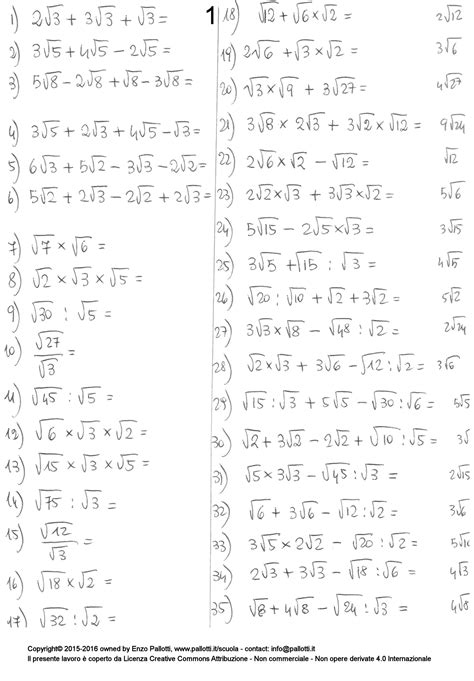 1) 2√3 + 3√3 + √3 =
2) 3√5 + 4√5 − 2√5 =
3) 5√8 − 2√8 + √8 − 3√8 =
4) 3√5 + 2√3 + 4√5 − √3 =
5) 6√3 + 5√2 − 3√3 − 2√2 =
6) 5√2 + 2√3 − 2√2 + 2√3 =
7) √7 × √6 =
8) √2 × √3 × √5 =
9) √30 : √5 =
10) √27/√3 =
11) √45 : √5 =
12) √6 × √3 × √2 =
13) √15 × √3 × √5 =
14) √75 : √3 =
15) √12/√3 =
16) √18 × √2 =
17) √32 : √2 =
1
18) √12 + √6 × √2 = 2√12
19) 2√6 + √3 × √2 = 3√6
20) √3 × √9 + 3√27 = 4√27
21) 3√8 × 2√3 + 3√2 × √12 = 9√24
22) 2√6 × √2 − √12 = √12
23) 2√2 × √3 + 3√3 × √2 = 5√6
24) 5√15 − 2√5 × √3 = 3√15
25) 3√5 + √15 : √3 = 4√5
26) √20 : √10 + √2 + 3√2 = 5√2
27) 3√3 × √8 − √48 : √2 = 2√24
28) √2 × √3 + 3√6 − √12 : √2 = 3√6
29) √15 : √3 + 5√5 − √30 : √6 = 5√5
30) √2 + 3√2 − 2√2 + √10 : √5 = 3√
31) √5 × 3√3 − √45 : √3 = 2√15
32) √6 + 3√6 − √12 : √2 = 3√6
33) 3√5 × 2√2 − √20 : √2 = 5√10
34) 2√3 + 3√3 − √18 : √6 = 4√3
35) √8 + 4√8 − √24 : √3 = 4√8
Copyright© 2015-2016 owned by Enzo Pallotti, www.pallotti.it/scuola - contact: info@pallotti.it
Il presente lavoro è coperto da Licenza Creative Commons Attribuzione - Non commerciale - Non opere derivate 4.0 Internazionale